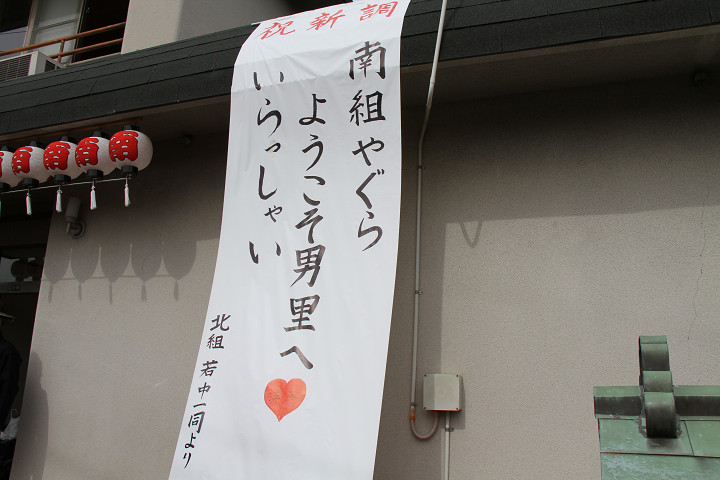 祝新調
南組やぐら
ようこそ男里へ
いらっしゃい
北組 若中一同より
南
南
南
南